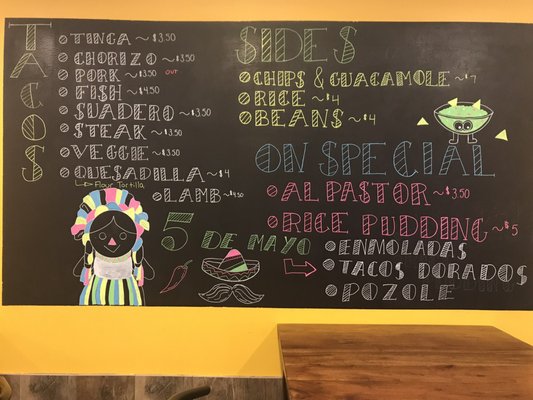 TACOS
TINGA ~$3.50
CHORIZO ~$3.50
PORK ~$3.50 OUT
FISH ~$4.50
SUADERO ~$3.50
STEAK ~$3.50
VEGGIE ~$3.50
QUESADILLA ~$4
Flour Tortilla
LAMB ~$4.50
SIDES
CHIPS & GUACAMOLE ~$7
RICE ~$4
BEANS ~$4
ON SPECIAL
AL PASTOR ~$3.50
RICE PUDDING ~$5
5 DE MAYO
ENMOLADAS
TACOS DORADOS
POZOLE